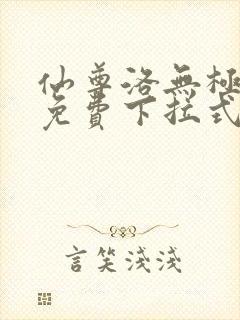 仙尊洛無極
免費下拉式
言笑淺淺